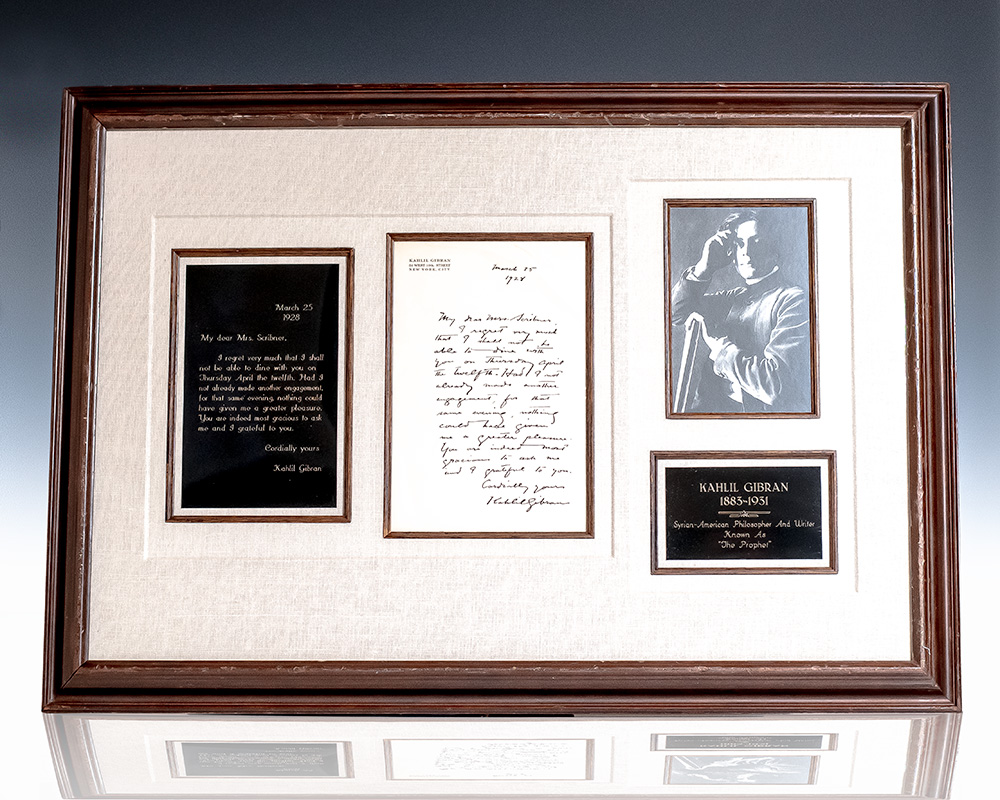 March 25
1928
My dear Mrs. Scribner,
I regret very much that I shall
not be able to dine with you on
Thursday April the twelfth. Had I
not already made another engagement,
for that same evening, nothing could
have given me a greater pleasure.
You are indeed most gracious to ask
me and I grateful to you.
Cordially yours
Kahlil Gibran
KAHLIL GIBRAN
51 WEST 10th STREET
NEW YORK, CITY
March 25
1928
My dear Mrs. Scribner,
I regret very much
that I shall not be
able to dine with
you on Thursday April
the twelfth. Had I not
already made another
engagement, for that
same evening, nothing
could have given
me a greater pleasure.
You are indeed most
gracious to ask me
and I grateful to you.
Cordially yours
Kahlil Gibran
KAHLIL GIBRAN
1883~1931
Syrian-American Philosopher And Writer
Known As
"The Prophet"